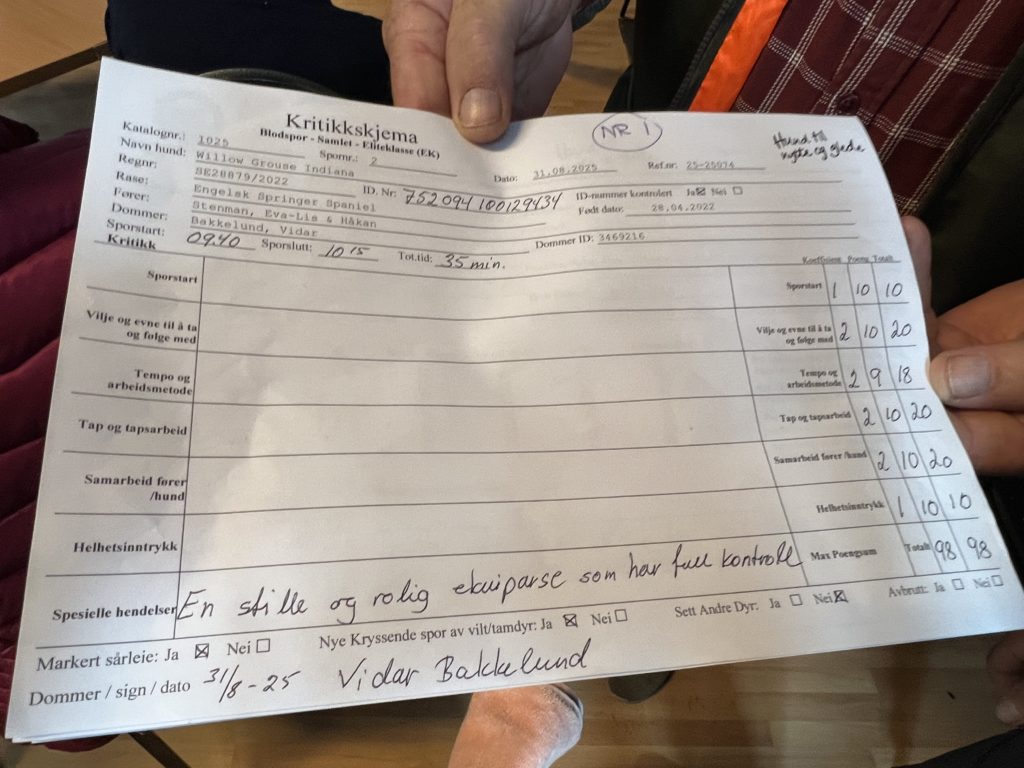 Kritikkskjema
Blodspor - Samlet - Eliteklasse (EK)
NR 1
Hund til
nytte og glede
Katalognr.: 1025 Spornr.: 2 Dato: 31.08.2025 Ref.nr: 25-25074
Navn hund: Willow Grouse Indiana
Regnr: SE28879/2022 ID. Nr: 752094100129434 ID-nummer kontrolert Ja ☒ Nei ☐
Rase: Engelsk Springer Spaniel Født dato: 28.04.2022
Fører: Stenman, Eva-Lis & Håkan
Dommer: Bakkelund, Vidar Dommer ID: 3469216
Sporstart: 09.40 Sporslutt: 10 15 Tot.tid: 35 min.
Kritikk Koeffisient Poeng Totalt
Sporstart Sporstart 1 10 10
Vilje og evne til å ta
og følge med Vilje og evne til å ta
og følge med 2 10 20
Tempo og
arbeidsmetode Tempo og
arbeidsmetode 2 9 18
Tap og tapsarbeid Tap og tapsarbeid 2 10 20
Samarbeid fører
/hund Samarbeid fører /hund 2 10 20
Helhetsinntrykk Helhetsinntrykk 1 10 10
Spesielle hendelser En stille og rolig ekuiparse som har full kontroll Max Poengsum Totalt 98 98
Markert sårleie: Ja ☒ Nei ☐ Nye Kryssende spor av vilt/tamdyr: Ja ☒ Nei ☐ Sett Andre Dyr: Ja ☐ Nei ☒ Avbrutt: Ja ☐ Nei ☐
Dommer / sign / dato 31/8-25 Vidar Bakkelund